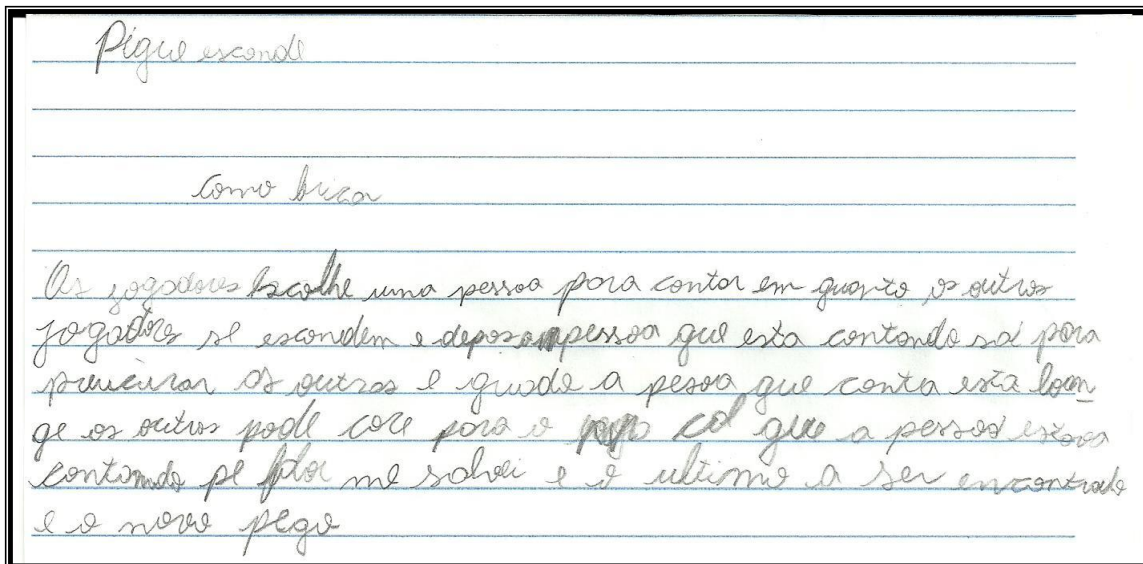 Pigue esconde
Como brica
Os jogadores escolhe uma pessoa para contar em quanto os outros
jogadores se escondem e depos a pessoa que esta contando sa para
prucurar os outros e quado a pesoa que conta esta lon
ge os outros pode core para o que a pessoa estava
contando e fala me salvei e o ultimo a ser encontrado
e o novo pego